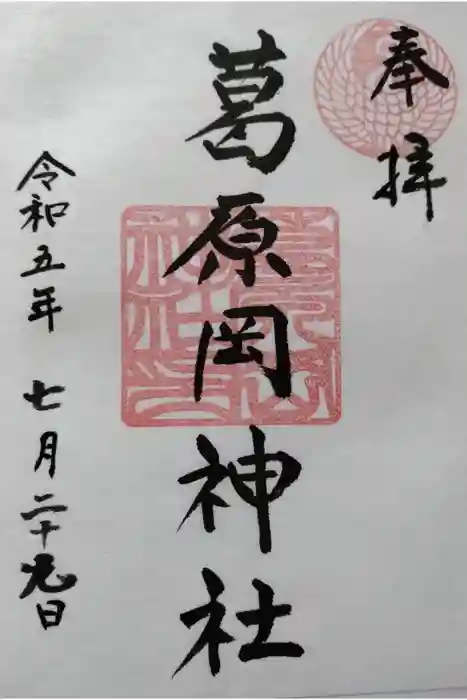 奉拝
葛原岡神社
令和五年七月二十九日